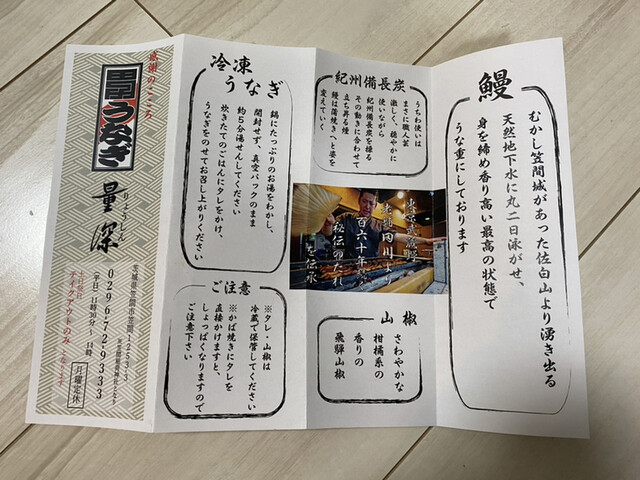 鰻
むかし笠間城があった佐白山より湧き出る
天然地下水に丸二日泳がせ、
身を締め香り高い最高の状態で
うな重にしております
紀州備長炭
うちわ使いは
まさに職人芸
激しく、穏やかに
使いながら
紀州備長炭を操る
その動きに合わせて
立ち昇る煙
鰻は蒲焼きへと姿を
変えていく
東京武蔵野
老舗内川より
百六十年
秘伝のたれ
を伝承
山椒
さわやかな
柑橘系の
香りの
飛騨山椒
冷凍
うなぎ
鍋にたっぷりのお湯をわかし、
開封せず、真空パックのまま
約5分湯せんしてください
炊きたてのごはんにタレをかけ、
うなぎをのせてお召し上がりください
ご注意
※タレ・山椒は
冷蔵で保管してください
※かば焼きにタレを
直接かけますと、
しょっぱくなりますので
ご注意下さい
感謝のこころ
うなぎ
量深
りょうしん
茨城県笠間市笠間1253-1
0296-72-9333
(平日) 11時30分〜14時
土日祝日
テイクアウトのみ
月曜定休